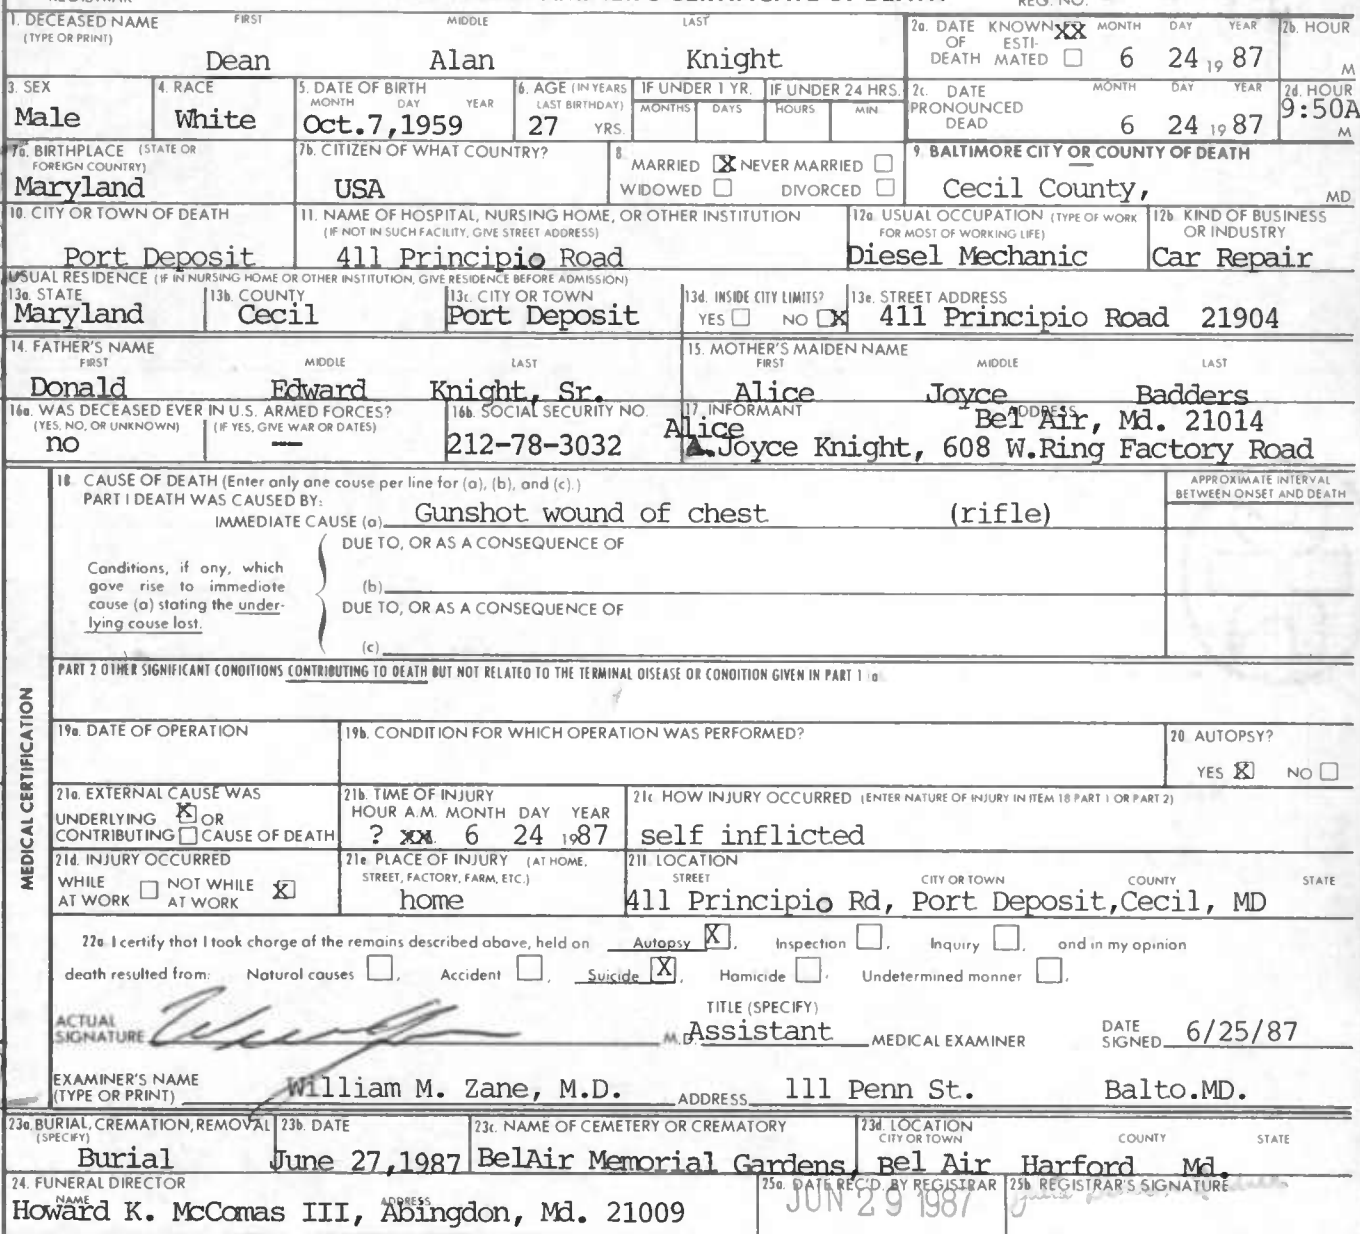 1. DECEASED NAME FIRST MIDDLE LAST
(TYPE OR PRINT)
Dean Alan Knight
2a. DATE OF DEATH KNOWN XX ESTI-MATED MONTH DAY YEAR
6 24 19 87
2b. HOUR
M
3. SEX
Male
4. RACE
White
5. DATE OF BIRTH
MONTH DAY YEAR
Oct.7,1959
6. AGE (IN YEARS LAST BIRTHDAY)
27 YRS.
IF UNDER 1 YR.
MONTHS DAYS
IF UNDER 24 HRS.
HOURS MIN
2c. DATE PRONOUNCED DEAD MONTH DAY YEAR
6 24 19 87
2d. HOUR
9:50A
M
7a. BIRTHPLACE (STATE OR FOREIGN COUNTRY)
Maryland
7b. CITIZEN OF WHAT COUNTRY?
USA
8 MARRIED X NEVER MARRIED
WIDOWED DIVORCED
9. BALTIMORE CITY OR COUNTY OF DEATH
Cecil County, MD
10. CITY OR TOWN OF DEATH
Port Deposit
11. NAME OF HOSPITAL, NURSING HOME, OR OTHER INSTITUTION
(IF NOT IN SUCH FACILITY, GIVE STREET ADDRESS)
411 Principio Road
12a. USUAL OCCUPATION (TYPE OF WORK FOR MOST OF WORKING LIFE)
Diesel Mechanic
12b. KIND OF BUSINESS OR INDUSTRY
Car Repair
USUAL RESIDENCE (IF IN NURSING HOME OR OTHER INSTITUTION, GIVE RESIDENCE BEFORE ADMISSION)
13a. STATE
Maryland
13b. COUNTY
Cecil
13c. CITY OR TOWN
Port Deposit
13d. INSIDE CITY LIMITS?
YES NO X
13e. STREET ADDRESS
411 Principio Road 21904
14. FATHER'S NAME
FIRST MIDDLE LAST
Donald Edward Knight, Sr.
15. MOTHER'S MAIDEN NAME
FIRST MIDDLE LAST
Alice Joyce Badders
16a. WAS DECEASED EVER IN U.S. ARMED FORCES?
(YES, NO, OR UNKNOWN) (IF YES, GIVE WAR OR DATES)
no —
16b. SOCIAL SECURITY NO.
212-78-3032
17. INFORMANT ADDRESS
Alice Bel Air, Md. 21014
A. Joyce Knight, 608 W.Ring Factory Road
18. CAUSE OF DEATH (Enter only one cause per line for (a), (b), and (c).)
PART I DEATH WAS CAUSED BY:
IMMEDIATE CAUSE (a) Gunshot wound of chest (rifle)
APPROXIMATE INTERVAL BETWEEN ONSET AND DEATH
DUE TO, OR AS A CONSEQUENCE OF
Conditions, if any, which
gove rise to immediate
cause (a) stating the under-
lying cause lost.
(b)
DUE TO, OR AS A CONSEQUENCE OF
(c)
PART 2 OTHER SIGNIFICANT CONDITIONS CONTRIBUTING TO DEATH BUT NOT RELATED TO THE TERMINAL DISEASE OR CONDITION GIVEN IN PART 1 a
MEDICAL CERTIFICATION
19a. DATE OF OPERATION
19b. CONDITION FOR WHICH OPERATION WAS PERFORMED?
20 AUTOPSY?
YES X NO
21a. EXTERNAL CAUSE WAS
UNDERLYING X OR
CONTRIBUTING CAUSE OF DEATH
21b. TIME OF INJURY
HOUR A.M. MONTH DAY YEAR
? XX 6 24 1987
21c HOW INJURY OCCURRED (ENTER NATURE OF INJURY IN ITEM 18 PART 1 OR PART 2)
self inflicted
21d. INJURY OCCURRED
WHILE AT WORK NOT WHILE AT WORK X
21e PLACE OF INJURY (AT HOME, STREET, FACTORY, FARM, ETC.)
home
21f. LOCATION
STREET CITY OR TOWN COUNTY STATE
411 Principio Rd, Port Deposit,Cecil, MD
22a I certify that I took charge of the remains described above, held on Autopsy X, Inspection, Inquiry, and in my opinion
death resulted from: Natural causes, Accident, Suicide X, Homicide, Undetermined manner.
ACTUAL SIGNATURE M.D.
TITLE (SPECIFY)
Assistant MEDICAL EXAMINER
DATE SIGNED 6/25/87
EXAMINER'S NAME
(TYPE OR PRINT) William M. Zane, M.D. ADDRESS 111 Penn St. Balto.MD.
23a. BURIAL, CREMATION, REMOVAL
(SPECIFY)
Burial
23b. DATE
June 27,1987
23c. NAME OF CEMETERY OR CREMATORY
BelAir Memorial Gardens,
23d. LOCATION
CITY OR TOWN COUNTY STATE
Bel Air Harford Md.
24. FUNERAL DIRECTOR
NAME ADDRESS
Howard K. McComas III, Abingdon, Md. 21009
25a. DATE REC'D. BY REGISTRAR
JUN 29 1987
25b REGISTRAR'S SIGNATURE